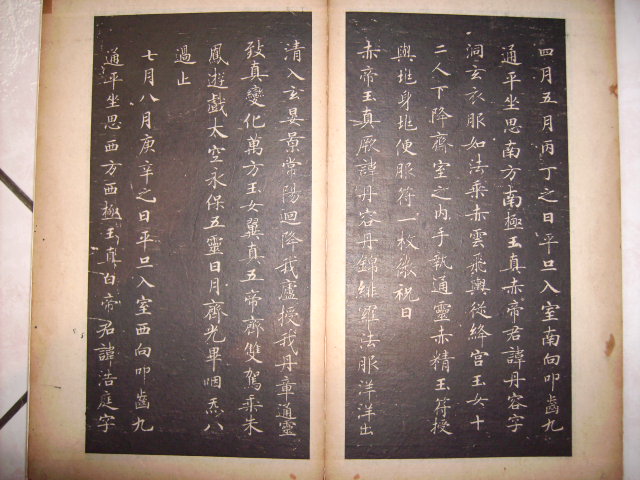 四月五月丙丁之日平旦入室南向叩齒九
通平坐思南方南極玉真赤帝君諱丹容字
洞玄衣服如法乘赤雲飛輿從絳宫玉女十
二人下降齋室之内手執通靈赤精玉符授
與地身地便服符一枚微祝日
赤帝玉真厥諱丹容丹錦緋羅法服洋洋出
清入玄晏景常陽迴降我廬授我丹章通靈
致真變化萬方玉女翼真五帝齊雙駕乘朱
鳳遊戲太空永保五靈日月齊光畢咽炁八
過止
七月八月庚辛之日平旦入室西向叩齒九
通平坐思西方西極玉真白帝君諱浩庭字